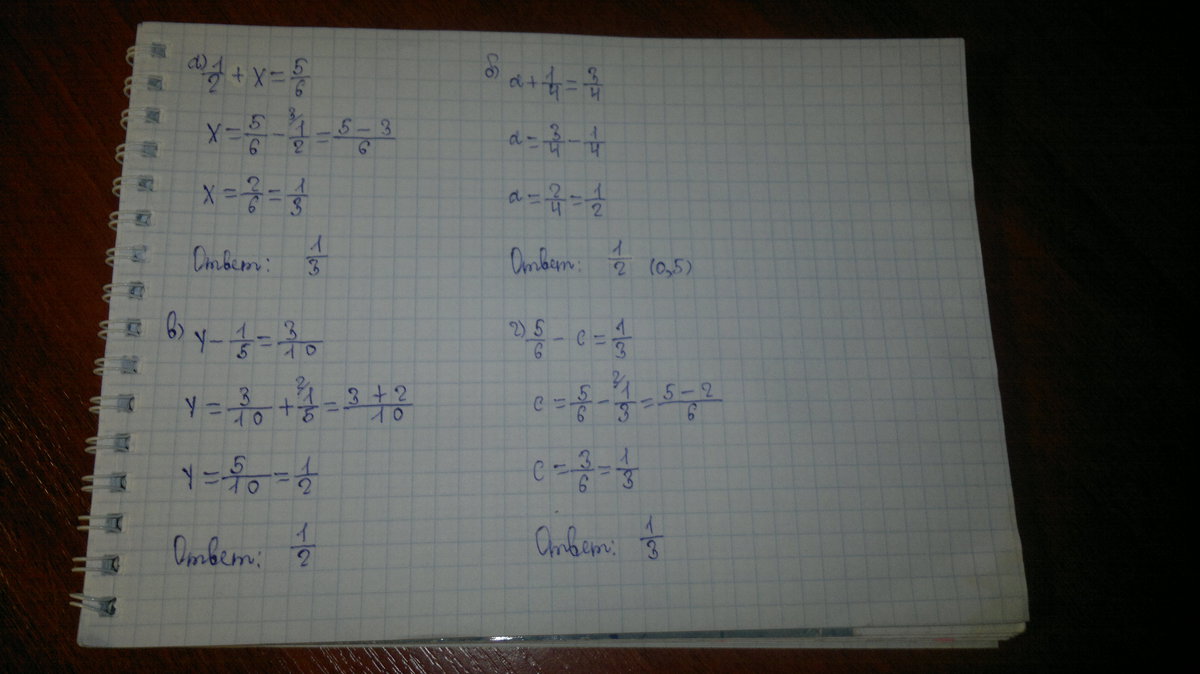 а) 1/2 + x = 5/6
x = 5/6 - 3/ 1/2 = (5 - 3)/6
x = 2/6 = 1/3
Ответ: 1/3
б) a + 1/4 = 3/4
a = 3/4 - 1/4
a = 2/4 = 1/2
Ответ: 1/2 (0,5)
в) y - 1/5 = 3/10
y = 3/10 + 2/ 1/5 = (3 + 2)/10
y = 5/10 = 1/2
Ответ: 1/2
г) 5/6 - c = 1/3
c = 5/6 - 2/ 1/3 = (5 - 2)/6
c = 3/6 = 1/3
Ответ: 1/3